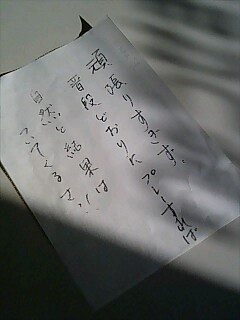 頑張りすぎず、
普段どおりにプレーすれば
自然と結果は
ついてくるさ!